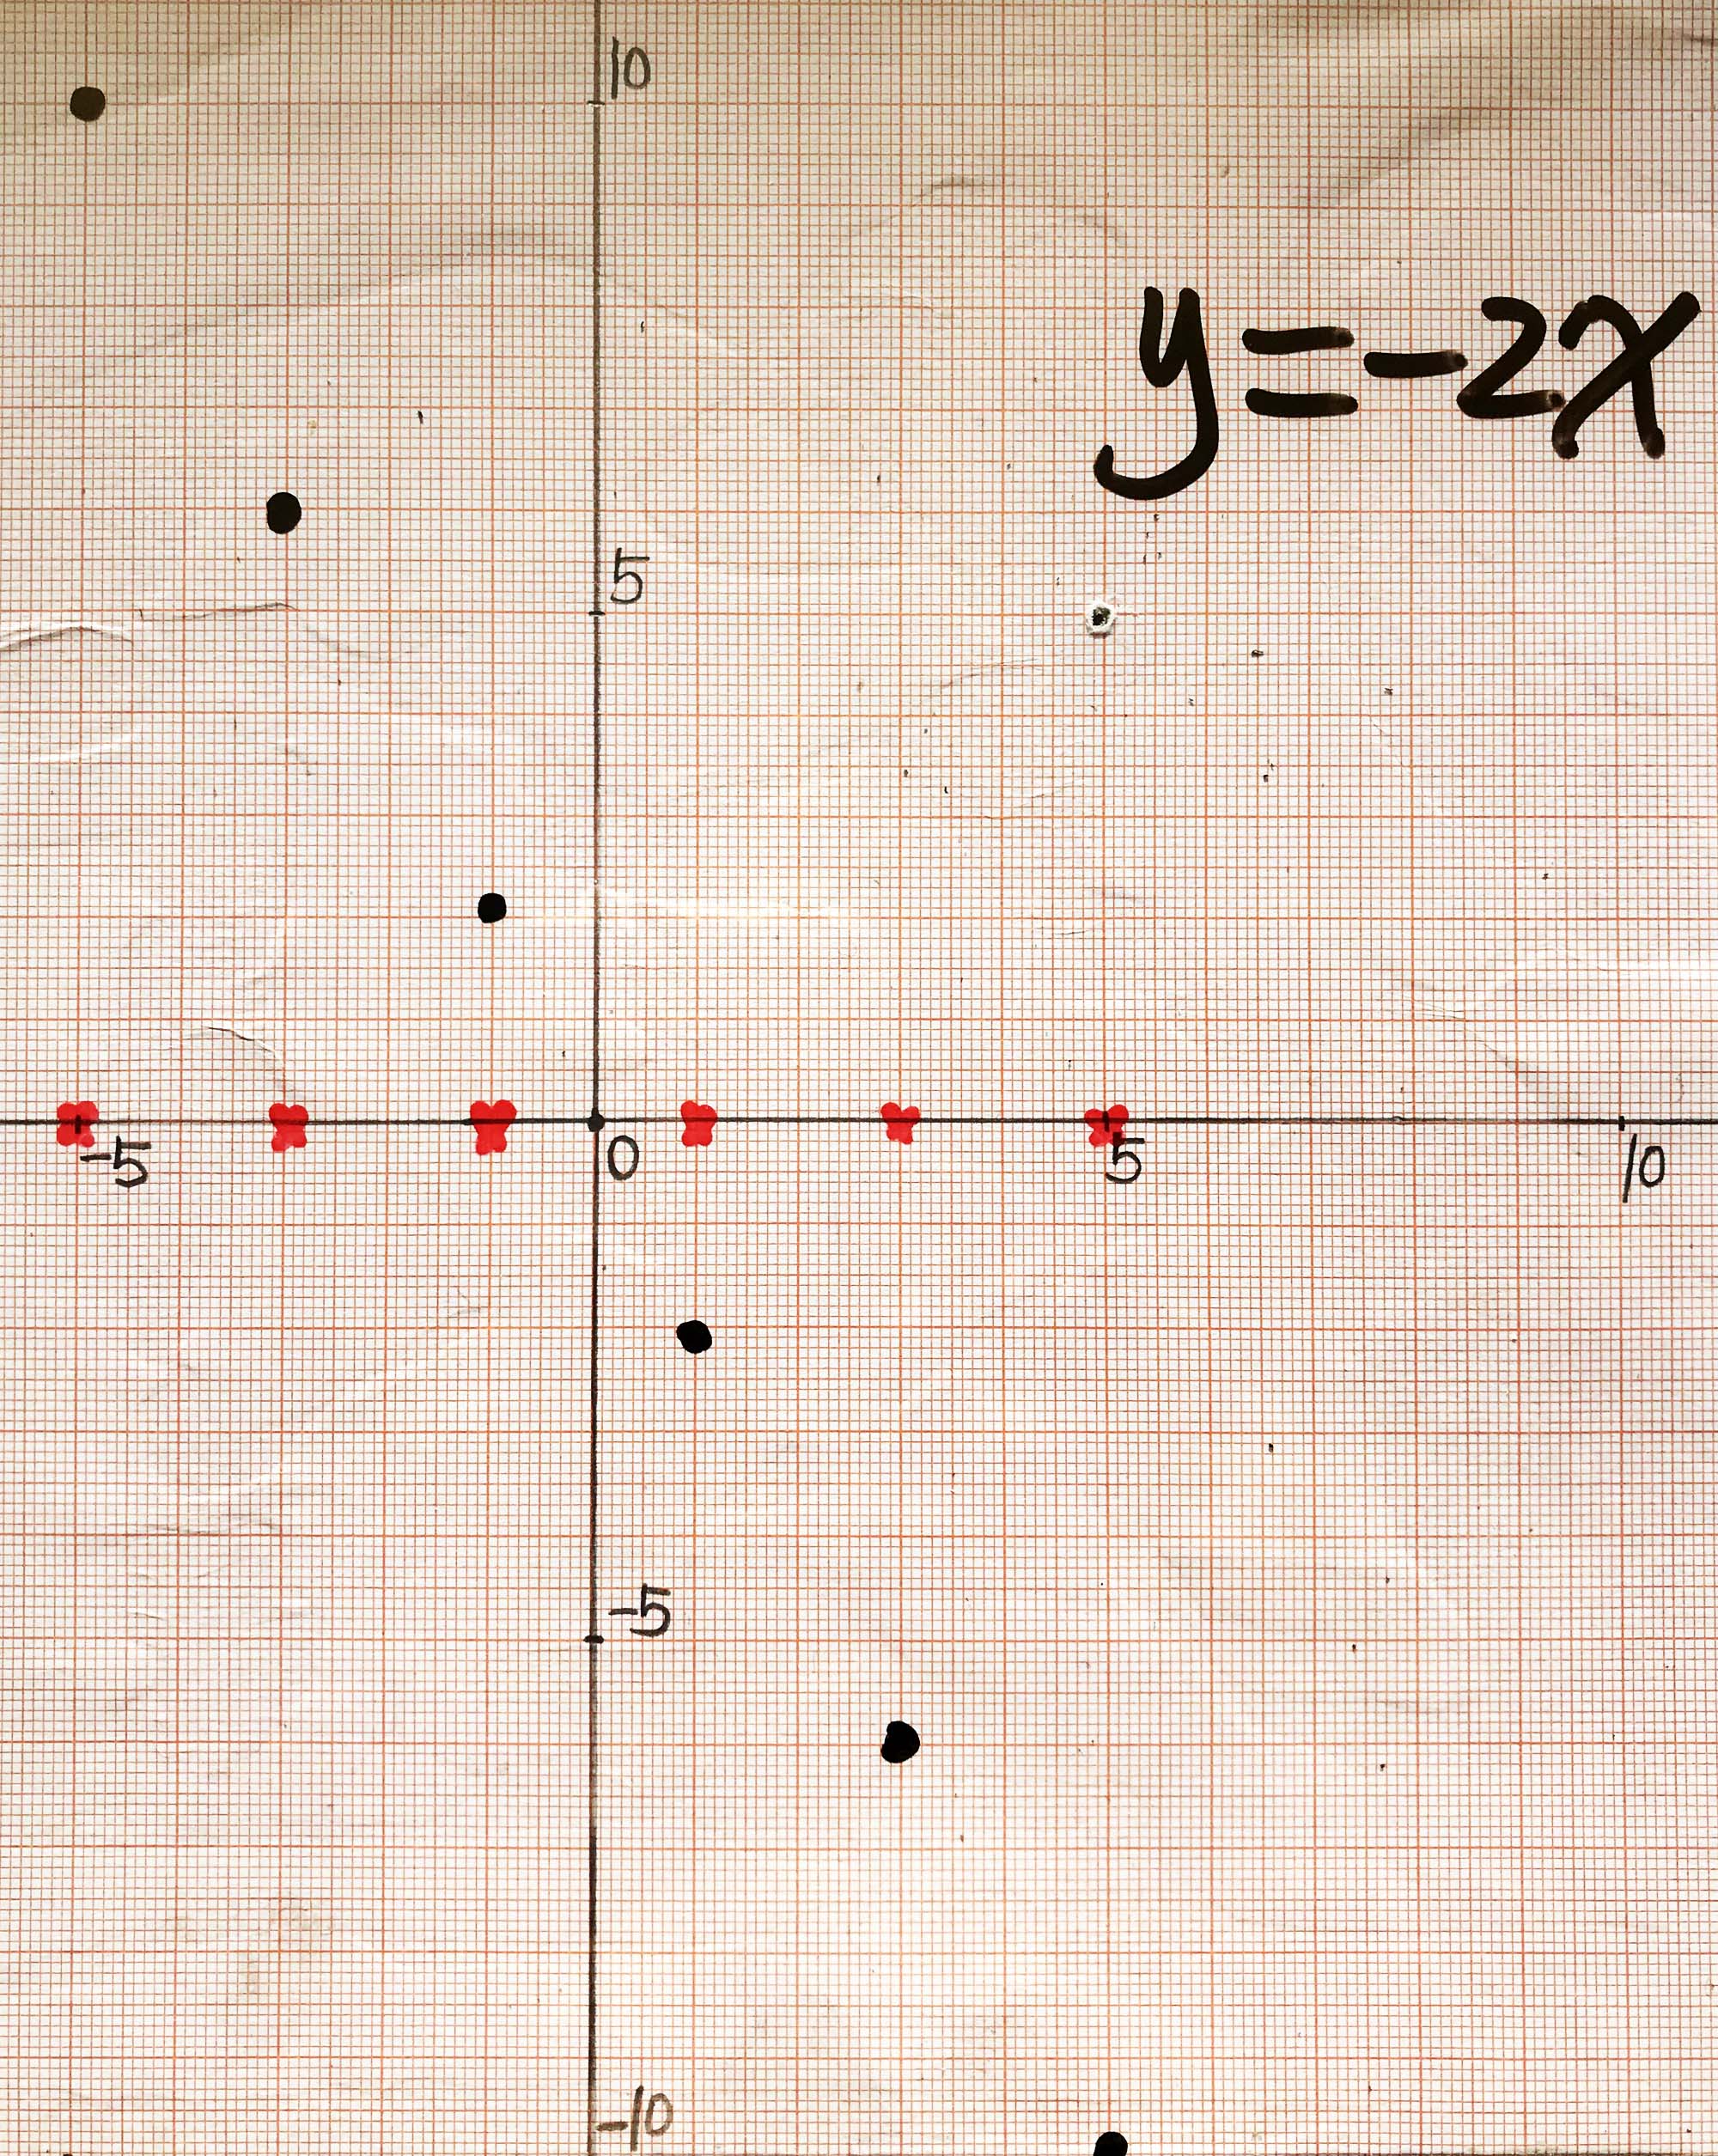 10
y=-2x
5
-5 0 5 10
-5
-10